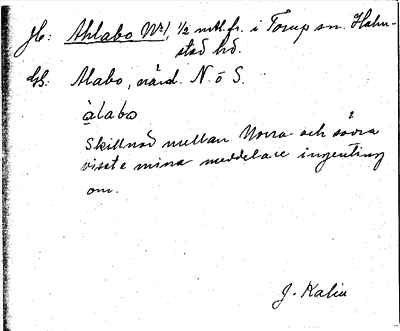 Jb: Ahlabo Nr 1, 1/2 mtl. fr. i Torup sn. Halm-
stad hd.
Gb: Alabo, vård. N. o S.
àlabo
Skillnad mellan Norra och södra
visste mina meddelare ingenting
om.
J. Kalin